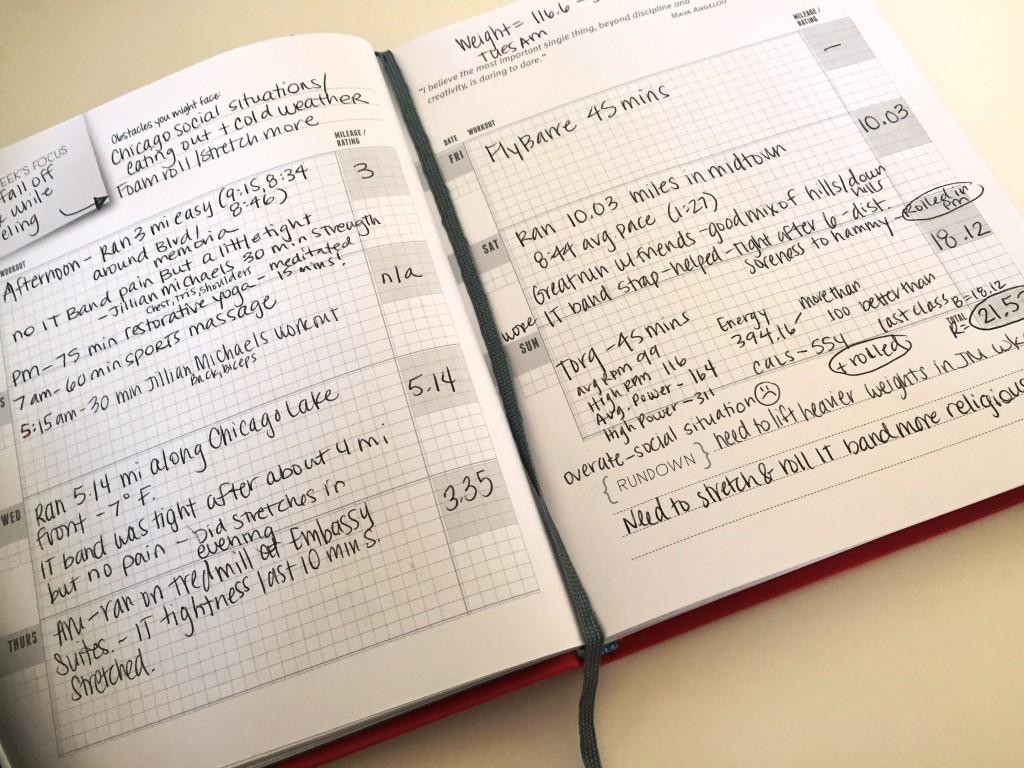 EEK'S FOCUS
fall off
while
eling
Obstacles you might face:
Chicago social situations/
eating out + cold weather
Foam roll/stretch more
WORKOUT
MILEAGE/
RATING
Afternoon - Ran 3 mi easy (9:15, 8:34
8:46)
around memorial
no IT Band pain. But a little tight
- Jillian michaels - 30 min strength
chest, tris, shoulders
PM - 75 min restorative yoga - meditated
15 mins!
3
7am - 60 min sports massage
5:15am - 30 min Jillian Michaels workout
Back, biceps
n/a
WED
Ran 5.14 mi along Chicago Lake
Front - 7°F.
IT band was tight after about 4 mi
but no pain. Did stretches in
evening
5.14
THURS
AM - ran on treadmill at Embassy
Suites - IT tightness last 10 mins.
Stretched.
3.35
Weight = 116.6
Tues AM
"I believe the most important single thing, beyond discipline and
creativity, is daring to dare."
MAYA ANGELOU
DATE
WORKOUT
MILEAGE/
RATING
FRI
FlyBarre 45 mins
-
SAT
Ran 10.03 miles in midtown
8:44 avg pace (1:27)
Great run w/ friends - good mix of hills/down
hills
wore IT band strap - helped - tight after 6 - dist.
soreness to hammy
Rolled in
pm
10.03
SUN
Torq - 45 mins
avg rpm 99
High rpm 116
Avg. Power - 164
High power - 311
Energy
394.16
cals - 554
more than
100 better than
last class
+ rolled
18.12
TOTAL
B = 18.12
R = 21.5
{RUNDOWN}
overate - social situation ☹ need to lift heavier weights in JM wk
Need to stretch & roll IT band more religious